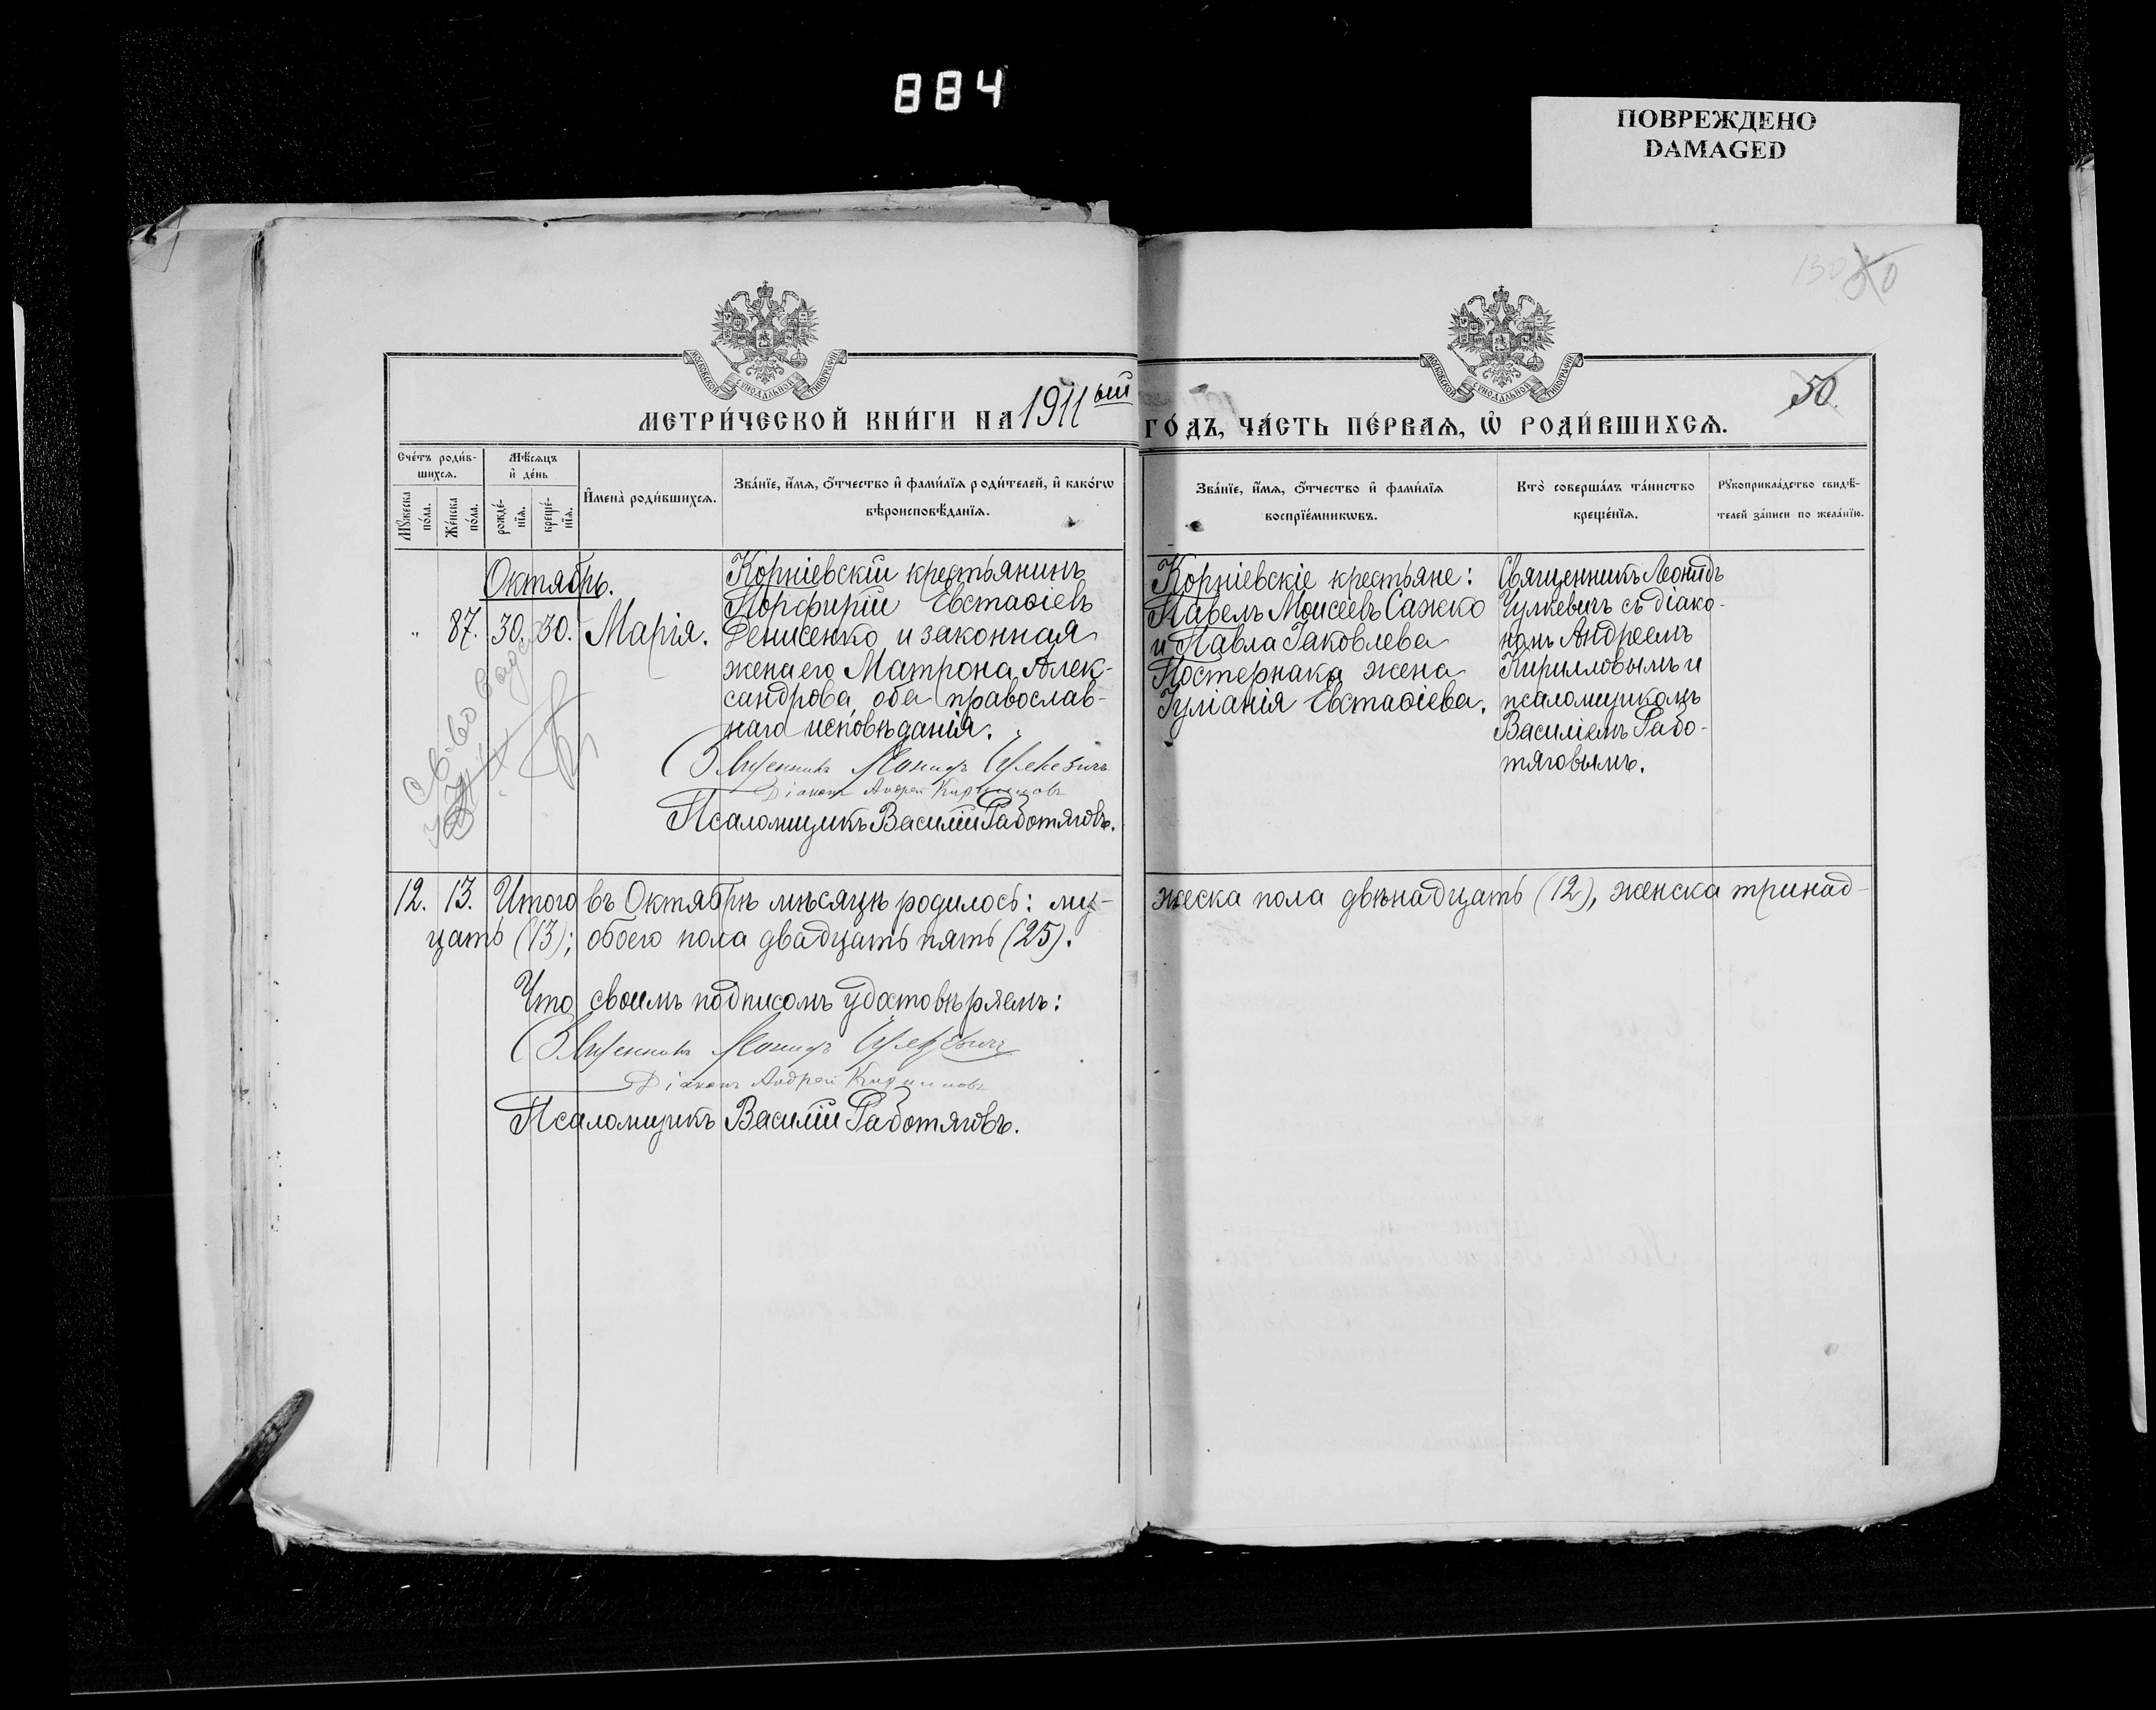 884
ПОВРЕЖДЕНО
DAMAGED
130
50
МОСКОВСКОЙ СѴНОДАЛЬНОЙ ТИПОГРАФІИ
МОСКОВСКОЙ СѴНОДАЛЬНОЙ ТИПОГРАФІИ
МЕТРИ́ЧЕСКОЙ КНИ́ГИ НА 1911ый
ГО́ДЪ, ЧА́СТЬ ПЕ́РВАѦ, Ѡ҆ РОДИ́ВШИХСѦ.
Сче́тъ роди́в-
шихсѧ.
Мꙋ́жеска
по́ла.
Же́нска
по́ла.
Мѣ́сѧцъ
и҆ де́нь
рожде́-
нїѧ.
креще́-
нїѧ.
И҆мена̀ роди́вшихсѧ.
Зва́нїе, и҆́мѧ, ѻ҆́тчество и҆ фами́лїѧ роди́телей, и҆ како́гѡ
вѣроисповѣ́данїѧ.
Зва́нїе, и҆́мѧ, ѻ҆́тчество и҆ фами́лїѧ
воспрїе́мникѡвъ.
Кто̀ соверша́лъ та́инство
креще́нїѧ.
Рꙋкоприкла́дство свидѣ́-
телей за́писи по жела́нїю.
Октябрь.
" 87. 30. 30. Марія.
Корніевскій крестьянинъ
Порфирій Евстаѳіевъ
Денисенко и законная
жена его Матрона Алек-
сандрова, оба православ-
наго исповѣданія.
Священникъ Леонидъ Чулкевичъ
Діаконъ Андрей Кирилловъ
Псаломщикъ Василій Работяговъ.
Корніевскіе крестьяне:
Павелъ Моисеевъ Сажко
и Павла Іаковлева
Постернака жена
Іуліанія Евстаѳіева.
Священникъ Леонидъ
Чулкевичъ съ діако-
номъ Андреемъ
Кирилловымъ и
псаломщикомъ
Василіемъ Рабо-
тяговымъ.
12. 13. Итого въ Октябрѣ мѣсяцѣ родилось: му-
жеска пола двѣнадцать (12), женска тринад-
цать (13); обоего пола двадцать пять (25).
Что своимъ подписомъ удостовѣряемъ:
Священникъ Леонидъ Чулкевичъ
Діаконъ Андрей Кирилловъ
Псаломщикъ Василій Работяговъ.